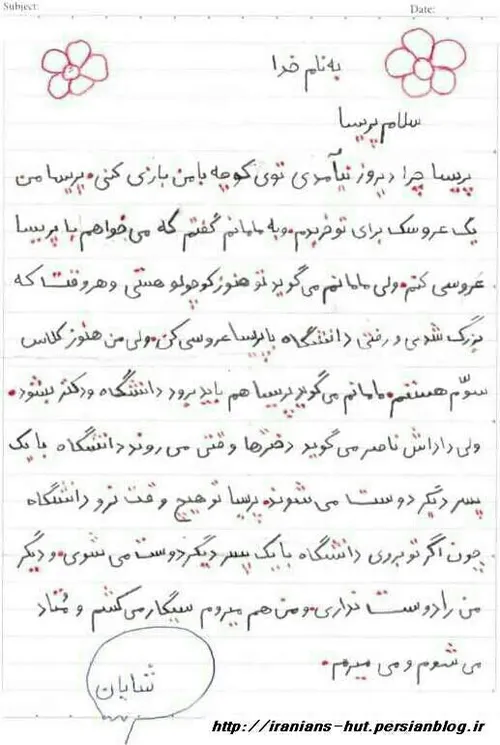 Subject:
Date:
به نام خدا
سلام پریسا
پریسا چرا دیروز نیآمدی توی کوچه با من بازی کنی. پریسا من
یک عروسک برای تو خریدم. و به مامانم گفتم که می خواهم با پریسا
عروسی کنم. ولی مامانم می گوید تو هنوز کوچولو هستی و هر وقت که
بزرگ شدی و رفتی دانشگاه با پریسا عروسی کن. ولی من هنوز کلاس
سوّم هستم. مامانم می گوید پریسا هم باید برود دانشگاه و دکتر بشود.
ولی داداش ناصر می گوید دخترها وقتی می روند دانشگاه با یک
پسر دیگر دوست می شوند. پرسا تو هیچ وقت نرو دانشگاه
چون اگر تو بروی دانشگاه با یک پسر دیگر دوست می شوی. و دیگر
من را دوست نداری. و من هم میروم سیگار می کشم و مُتاد
می شوم و می میرم.
شایان
http://iranians-hut.persianblog.ir